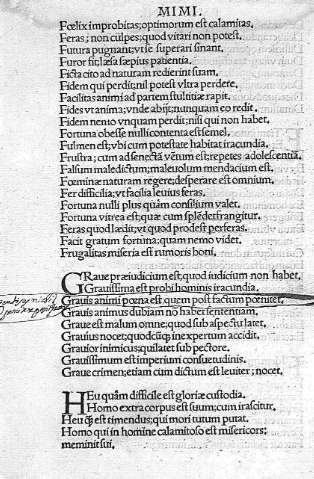 MIMI.
Fœlix improbitas; optimorum est calamitas.
Feras; non culpes; quod vitari non potest.
Futura pugnant; vt se superari sinant.
Furor fit; læsa sæpius patientia.
Ficta cito ad naturam redierint suam.
Fidem qui perdit; nil potest vltra perdere.
Facilitas animi ad partem stultitiæ rapit.
Fides vt anima; vnde abijt; nunquam eo redit.
Fidem nemo vnquam perdit; nisi qui non habet.
Fortuna obesse nulli contenta est semel.
Fulmen est; vbi cum potestate habitat iracundia.
Frustra; cum ad senectā vētum est; repetes adolescentiā.
Falsum maledictum; maleuolum mendacium est.
Fœminæ naturam regere; desperare est omnium.
Fer difficilia; vt facilia leuius feras.
Fortuna nulli plus quàm consilium valet.
Fortuna vitrea est; quæ cum splēdet frangitur.
Feras quod lædit; vt quod prodest perferas.
Facit gratum fortuna; quam nemo videt.
Frugalitas miseria est rumoris boni.
GRaue præiudicium est; quod iudicium non habet.
Grauissima est probi hominis iracundia.
Grauis animi pœna est quem post factum pœnitet.
Grauis animus dubiam nō habet sententiam.
Graue est malum omne; quod sub aspectu latet.
Grauius nocet; quodcūq; inexpertum accidit.
Grauior inimicus; qui latet sub pectore.
Grauissimum est imperium consuetudinis.
Graue crimen; etiam cum dictum est leuiter; nocet.
HEu quàm difficile est gloriæ custodia.
Homo extra corpus est suum; cum irascitur.
Heu q̄ est timendus; qui mori tutum putat.
Homo qui in homine calamitoso est misericors;
meminit sui.